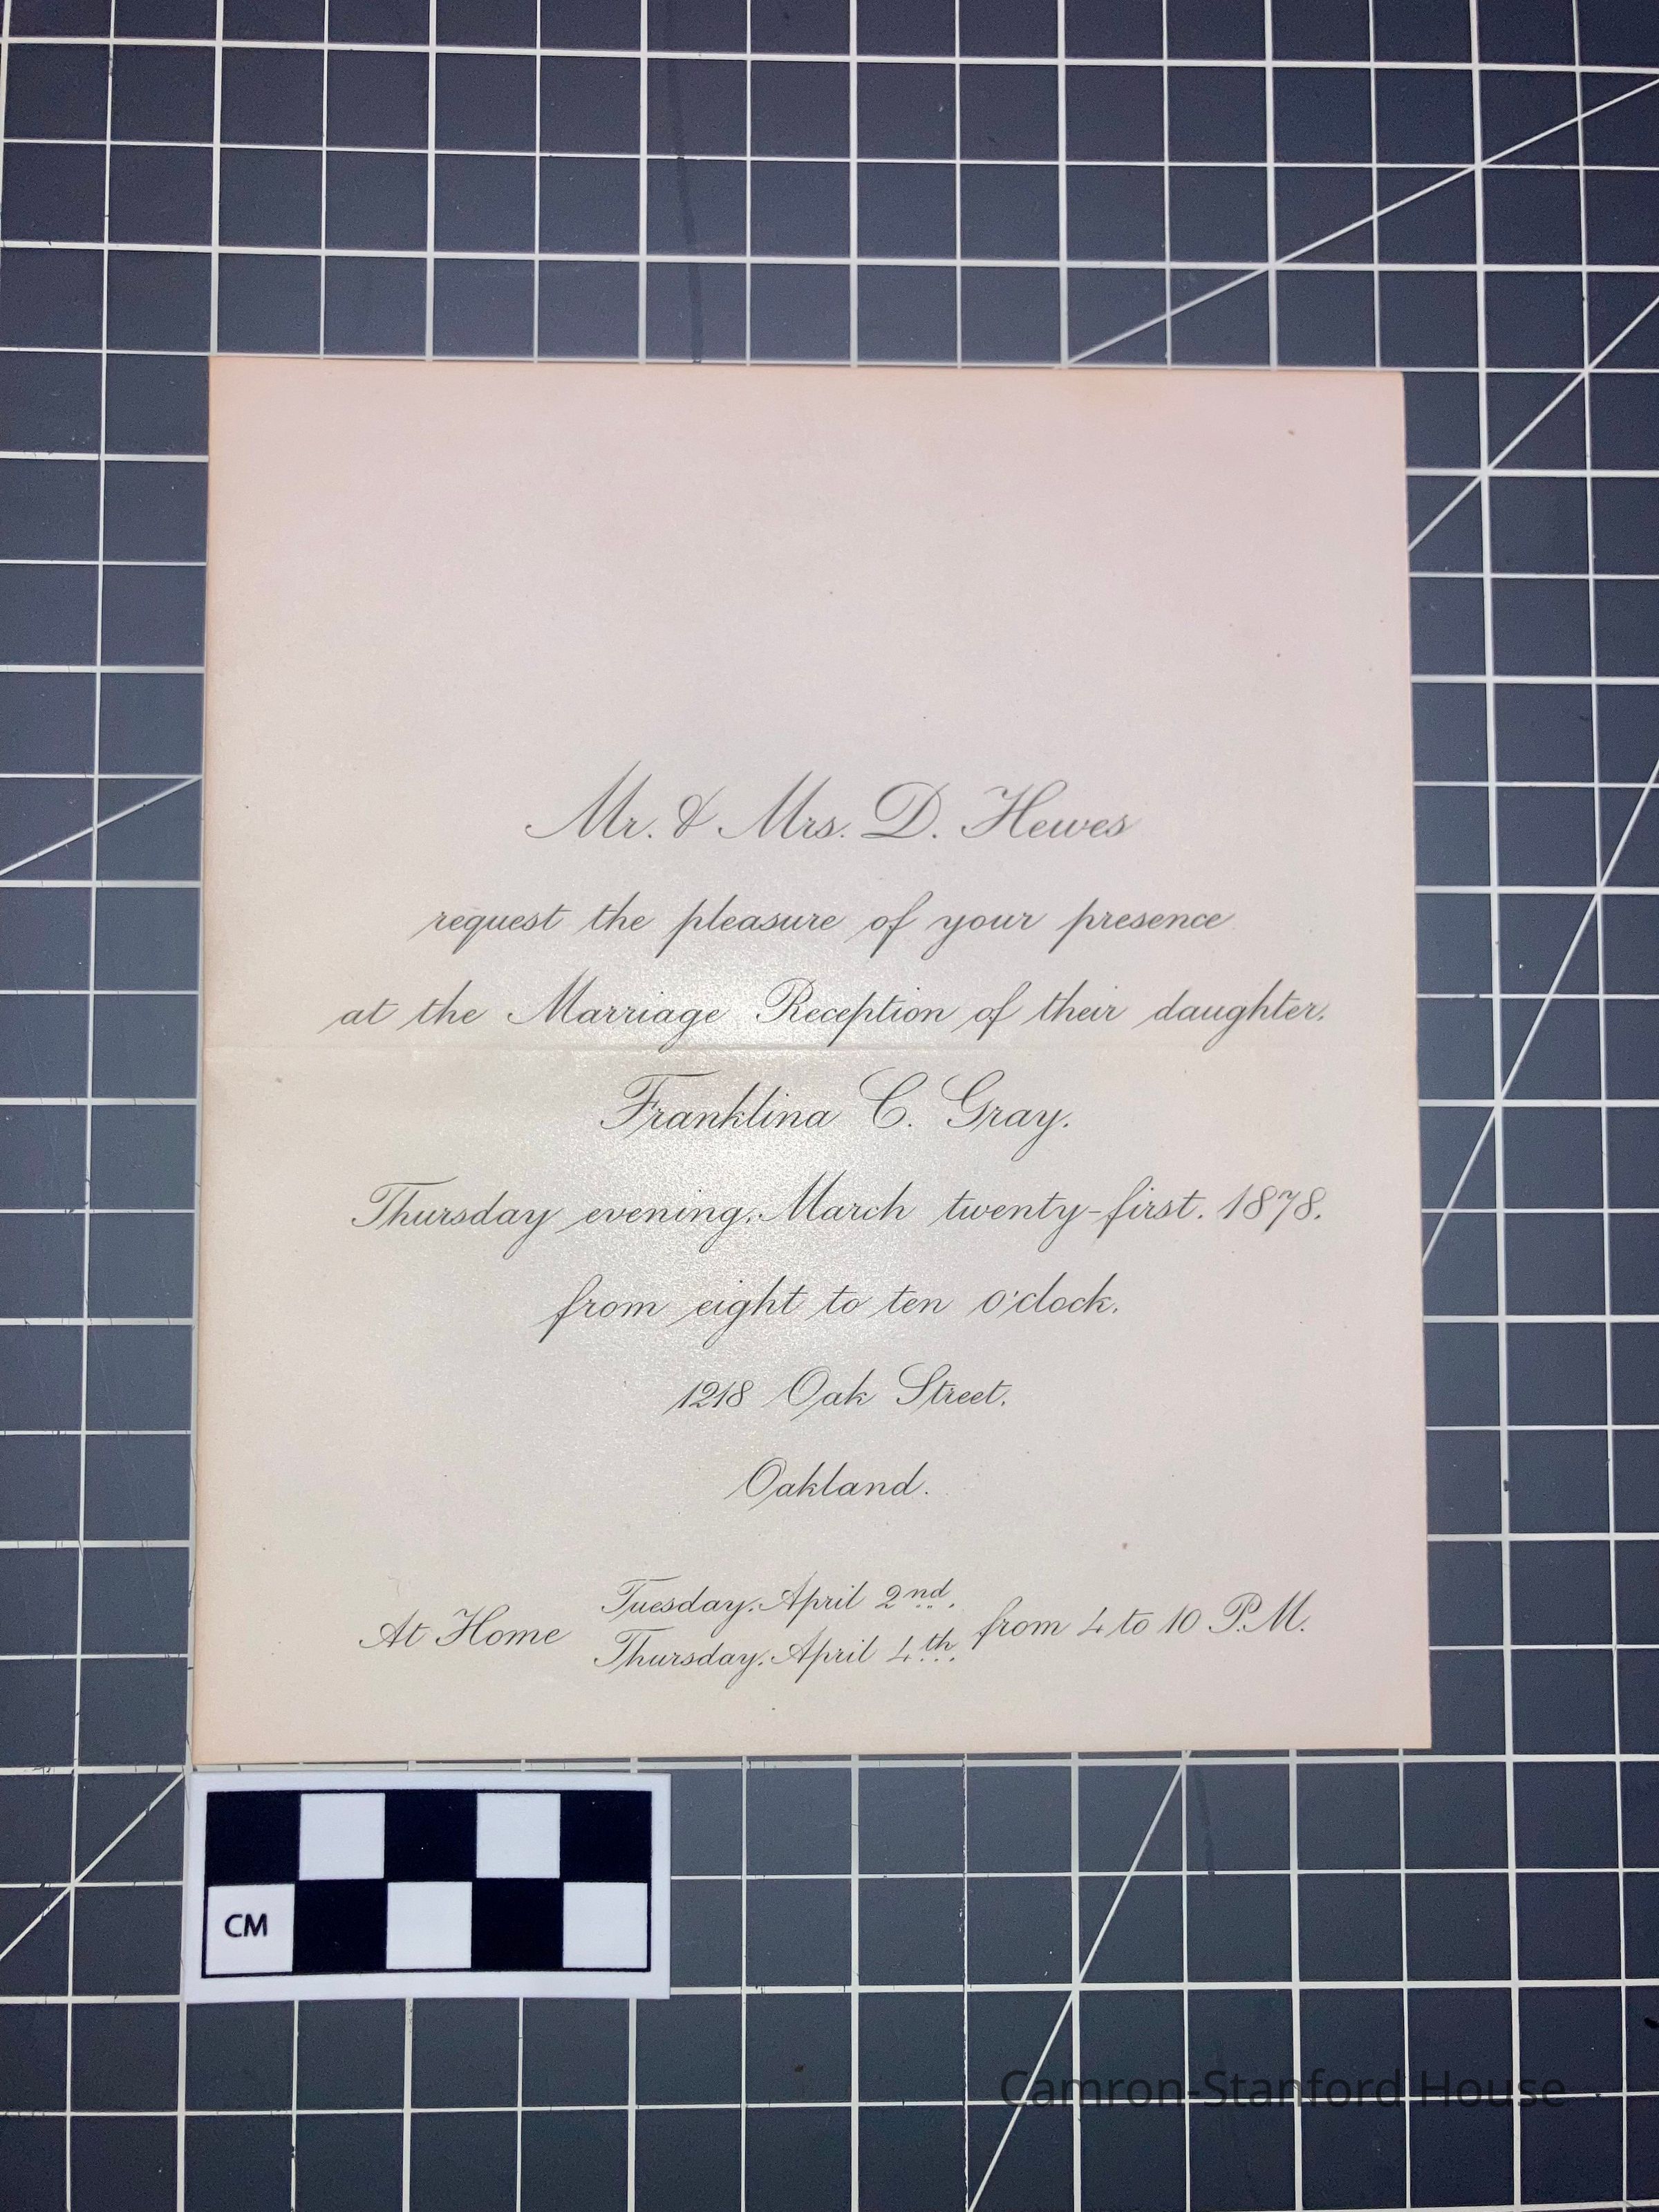 Mr. & Mrs. D. Hewes
request the pleasure of your presence
at the Marriage Reception of their daughter,
Franklina C. Gray,
Thursday evening, March twenty-first, 1878,
from eight to ten o'clock,
1218 Oak Street,
Oakland.
At Home Tuesday, April 2nd, Thursday, April 4th, from 4 to 10 P.M.
CM
Camron-Stanford House